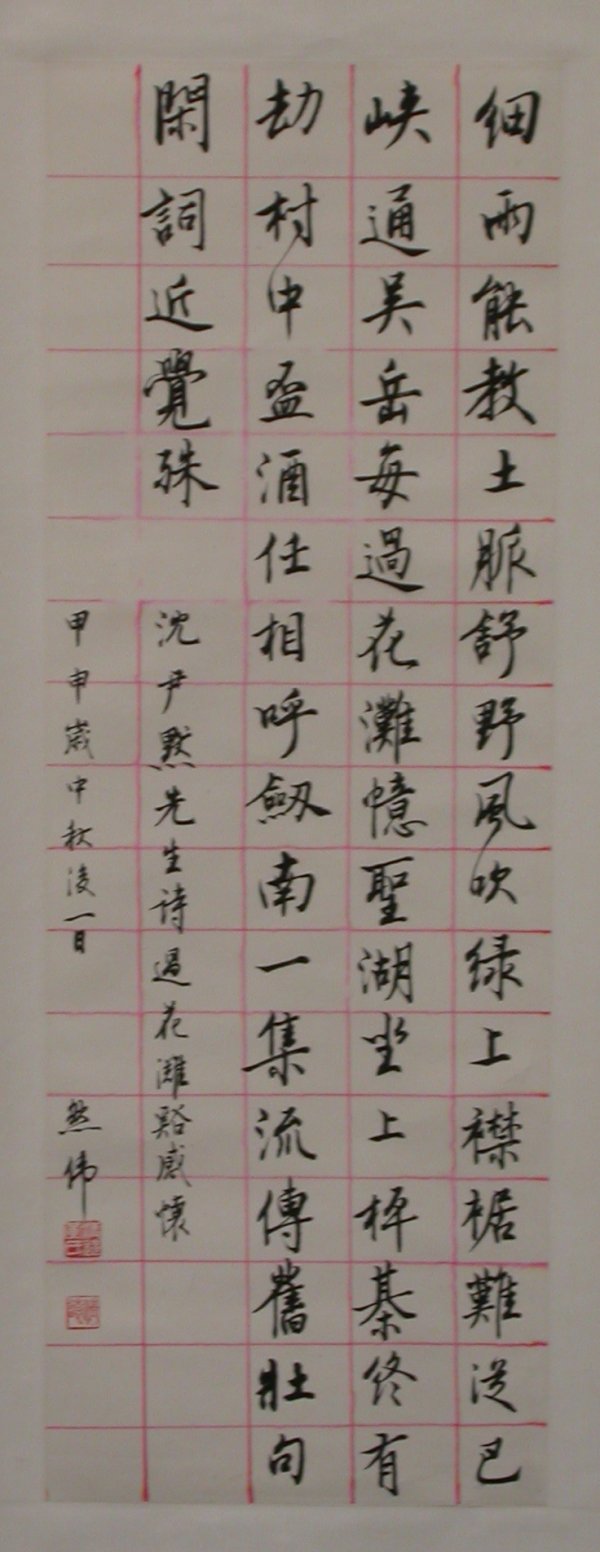 細雨能教土脈舒野風吹绿上襟裾難從巴
峽通吴岳每過花灘憶聖湖坐上枰棊终有
劫村中盃酒任相呼劔南一集流傳舊壯句
閑詞近覺殊
沈尹默先生诗過花灘谿感懷
甲申歲中秋後一日
然偉